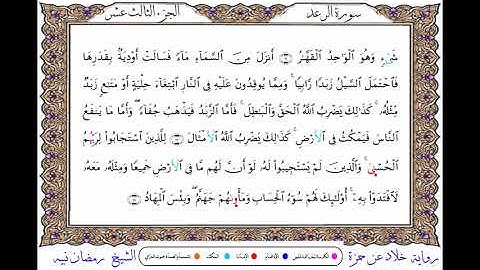 سورة الرعد
الجزء الثالث عشر
شَيْءٖ وَهُوَ ٱلْوَٰحِدُ ٱلْقَهَّٰرُ أَنزَلَ مِنَ ٱلسَّمَآءِ مَآءٗ فَسَالَتْ أَوْدِيَةُۢ بِقَدَرِهَا
فَٱحْتَمَلَ ٱلسَّيْلُ زَبَدٗا رَّابِيٗاۚ وَمِمَّا يُوقِدُونَ عَلَيْهِ فِي ٱلنَّارِ ٱبْتِغَآءَ حِلْيَةٍ أَوْ مَتَٰعٖ زَبَدٞ
مِّثْلُهُۥۚ كَذَٰلِكَ يَضْرِبُ ٱللَّهُ ٱلْحَقَّ وَٱلْبَٰطِلَۚ فَأَمَّا ٱلزَّبَدُ فَيَذْهَبُ جُفَآءٗۖ وَأَمَّا مَا يَنفَعُ
ٱلنَّاسَ فَيَمْكُثُ فِي ٱلْأَرْضِۚ كَذَٰلِكَ يَضْرِبُ ٱللَّهُ ٱلْأَمْثَالَ لِلَّذِينَ ٱسْتَجَابُواْ لِرَبِّهِمُ
ٱلْحُسْنَىٰۚ وَٱلَّذِينَ لَمْ يَسْتَجِيبُواْ لَهُۥ لَوْ أَنَّ لَهُم مَّا فِي ٱلْأَرْضِ جَمِيعٗا وَمِثْلَهُۥ مَعَهُۥ
لَٱفْتَدَوْاْ بِهِۦٓۚ أُوْلَٰٓئِكَ لَهُمْ سُوٓءُ ٱلْحِسَابِ وَمَأْوَىٰهُمْ جَهَنَّمُۖ وَبِئْسَ ٱلْمِهَادُ
رواية خلاد عن حمزة
الشيخ رمضان نبيه